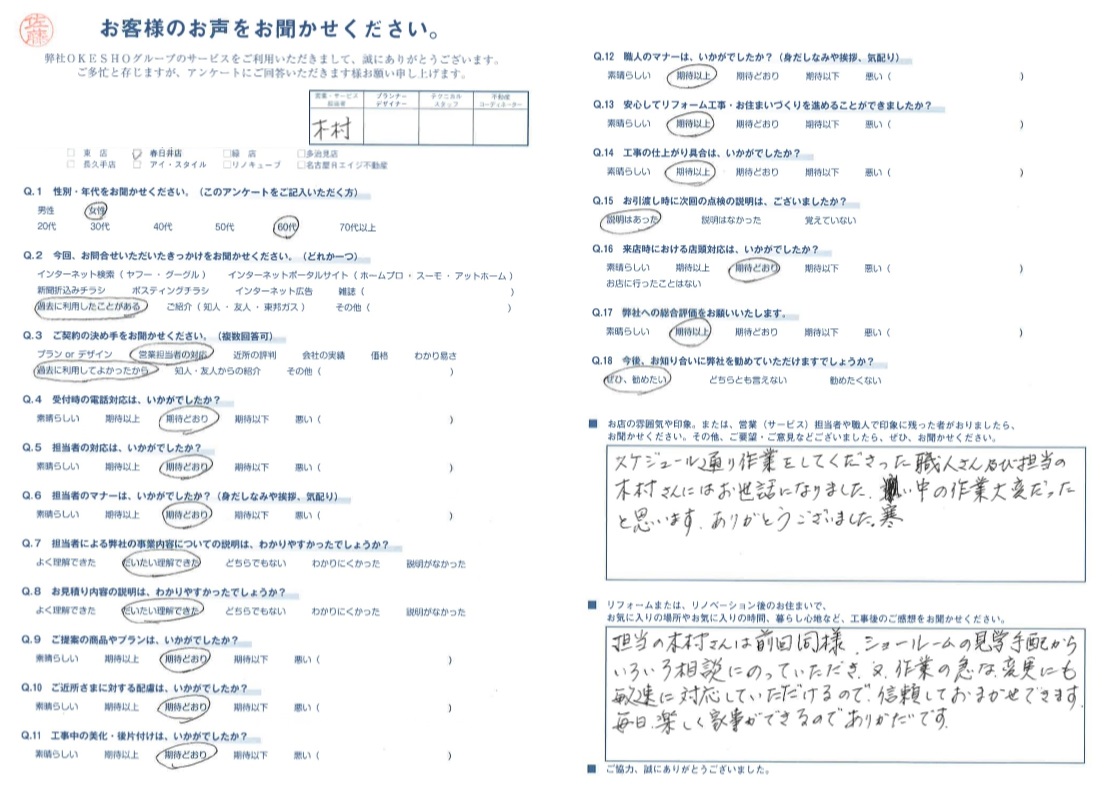 佐藤
お客様のお声をお聞かせください。
弊社OKESHOグループのサービスをご利用いただきまして、誠にありがとうございます。
ご多忙と存じますが、アンケートにご回答いただきます様お願い申し上げます。
営業・サービス担当者 プランナーデザイナー テクニカルスタッフ 不動産コーディネーター
木村
□東店 □春日井店 □緑店 □多治見店
□長久手店 □アイ・スタイル □リノキューブ □名古屋Rエイジ不動産
Q.1 性別・年代をお聞かせください。（このアンケートをご記入いただく方）
男性 女性
20代 30代 40代 50代 60代 70代以上
Q.2 今回、お問合せいただいたきっかけをお聞かせください。（どれか一つ）
インターネット検索（ヤフー・グーグル） インターネットポータルサイト（ホームプロ・スーモ・アットホーム）
新聞折込みチラシ ポスティングチラシ インターネット広告 雑誌（ ）
過去に利用したことがある ご紹介（知人・友人・東邦ガス） その他（ ）
Q.3 ご契約の決め手をお聞かせください。（複数回答可）
プラン or デザイン 営業担当者の対応 近所の評判 会社の実績 価格 わかり易さ
過去に利用してよかったから 知人・友人からの紹介 その他（ ）
Q.4 受付時の電話対応は、いかがでしたか？
素晴らしい 期待以上 期待どおり 期待以下 悪い（ ）
Q.5 担当者の対応は、いかがでしたか？
素晴らしい 期待以上 期待どおり 期待以下 悪い（ ）
Q.6 担当者のマナーは、いかがでしたか？（身だしなみや挨拶、気配り）
素晴らしい 期待以上 期待どおり 期待以下 悪い（ ）
Q.7 担当者による弊社の事業内容についての説明は、わかりやすかったでしょうか？
よく理解できた だいたい理解できた どちらでもない わかりにくかった 説明がなかった
Q.8 お見積り内容の説明は、わかりやすかったでしょうか？
よく理解できた だいたい理解できた どちらでもない わかりにくかった 説明がなかった
Q.9 ご提案の商品やプランは、いかがでしたか？
素晴らしい 期待以上 期待どおり 期待以下 悪い（ ）
Q.10 ご近所さまに対する配慮は、いかがでしたか？
素晴らしい 期待以上 期待どおり 期待以下 悪い（ ）
Q.11 工事中の美化・後片付けは、いかがでしたか？
素晴らしい 期待以上 期待どおり 期待以下 悪い（ ）
Q.12 職人のマナーは、いかがでしたか？（身だしなみや挨拶、気配り）
素晴らしい 期待以上 期待どおり 期待以下 悪い（ ）
Q.13 安心してリフォーム工事・お住まいづくりを進めることができましたか？
素晴らしい 期待以上 期待どおり 期待以下 悪い（ ）
Q.14 工事の仕上がり具合は、いかがでしたか？
素晴らしい 期待以上 期待どおり 期待以下 悪い（ ）
Q.15 お引渡し時に次回の点検の説明は、ございましたか？
説明はあった 説明はなかった 覚えていない
Q.16 来店時における店頭対応は、いかがでしたか？
素晴らしい 期待以上 期待どおり 期待以下 悪い（ ）
お店に行ったことはない
Q.17 弊社への総合評価をお願いいたします。
素晴らしい 期待以上 期待どおり 期待以下 悪い（ ）
Q.18 今後、お知り合いに弊社を勧めていただけますでしょうか？
ぜひ、勧めたい どちらとも言えない 勧めたくない
■ お店の雰囲気や印象。または、営業（サービス）担当者や職人で印象に残った者がおりましたら、
お聞かせください。その他、ご要望・ご意見などございましたら、ぜひ、お聞かせください。
スケジュール通り作業をしてくださった職人さん及び担当の
木村さんにはお世話になりました。寒い中の作業大変だった
と思います。ありがとうございました。
■ リフォームまたは、リノベーション後のお住まいで、
お気に入りの場所やお気に入りの時間、暮らし心地など、工事後のご感想をお聞かせください。
担当の木村さんは前回同様、ショールームの見学手配から
いろいろ相談にのっていただき、又、作業の急な変更にも
敏速に対応していただけるので、信頼しておまかせできます。
毎日、楽しく家事ができるのでありがたいです。
■ ご協力、誠にありがとうございました。